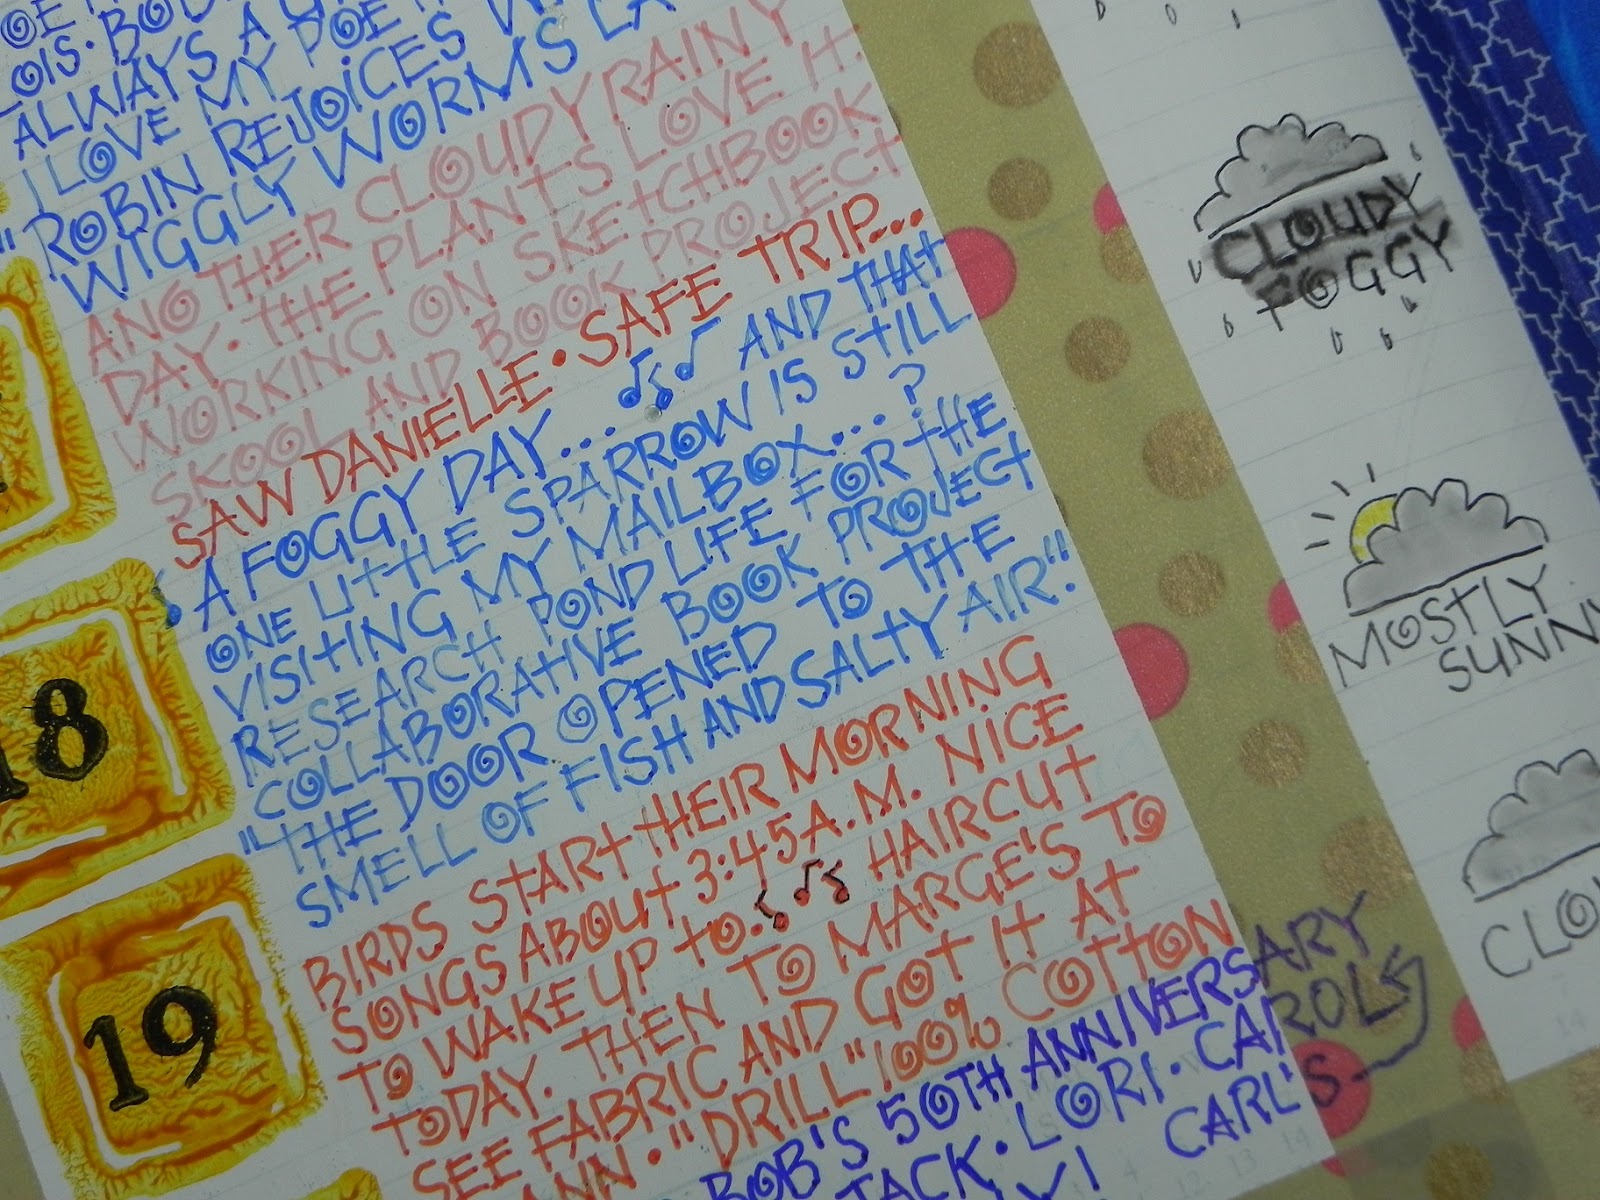 LOIS. BOD
ALWAYS A
I LOVE MY POET
"ROBIN REJOICES
WIGGLY WORMS
ANOTHER CLOUDY RAINY
DAY. THE PLANTS LOVE IT.
WORKING ON SKETCHBOOK
SKOOL AND BOOK PROJECT
SAW DANIELLE • SAFE TRIP...
A FOGGY DAY... AND THAT
ONE LITTLE SPARROW IS STILL
VISITING MY MAILBOX...?
RESEARCH POND LIFE FOR THE
COLLABORATIVE BOOK PROJECT
"THE DOOR OPENED TO THE
SMELL OF FISH AND SALTY AIR".
BIRDS START THEIR MORNING
SONGS ABOUT 3:45 A.M. NICE
TO WAKE UP TO. HAIRCUT
TODAY. THEN TO MARGE'S TO
SEE FABRIC AND GOT IT AT
ANN • "DRILL" 100% COTTON
BOB'S 50TH ANNIVERSARY
TACK • LORI • CAROL
CARL'S
18
19
CLOUDY
FOGGY
MOSTLY
SUNNY
CLO